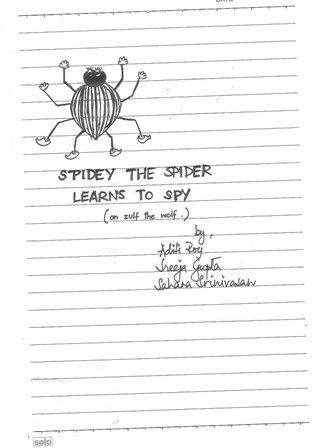 SPIDEY THE SPIDER
LEARNS TO SPY
(on zulf the wolf.)
by,
Aditi Roy
Sreeja Gupta
Sahana Srinivasan
solo